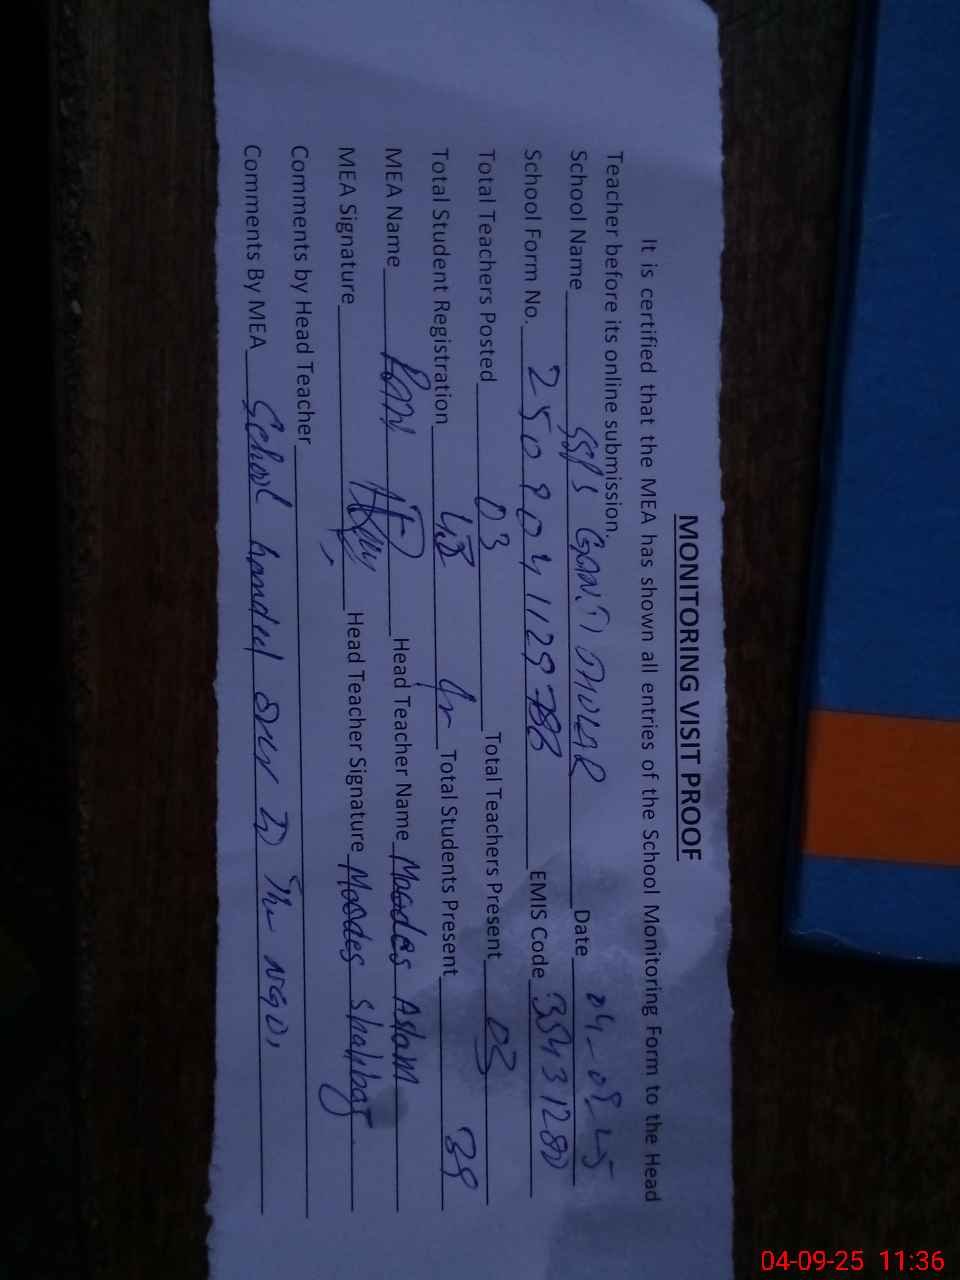 MONITORING VISIT PROOF
It is certified that the MEA has shown all entries of the School Monitoring Form to the Head
Teacher before its online submission.
School Name Date 04-09-25
School Form No. EMIS Code 35431280
Total Teachers Posted 03 Total Teachers Present 03
Total Student Registration 48 Total Students Present 39
MEA Name Head Teacher Name Aslam
MEA Signature Head Teacher Signature
Comments by Head Teacher
Comments By MEA School handed over To The NGO,
04-09-25 11:36